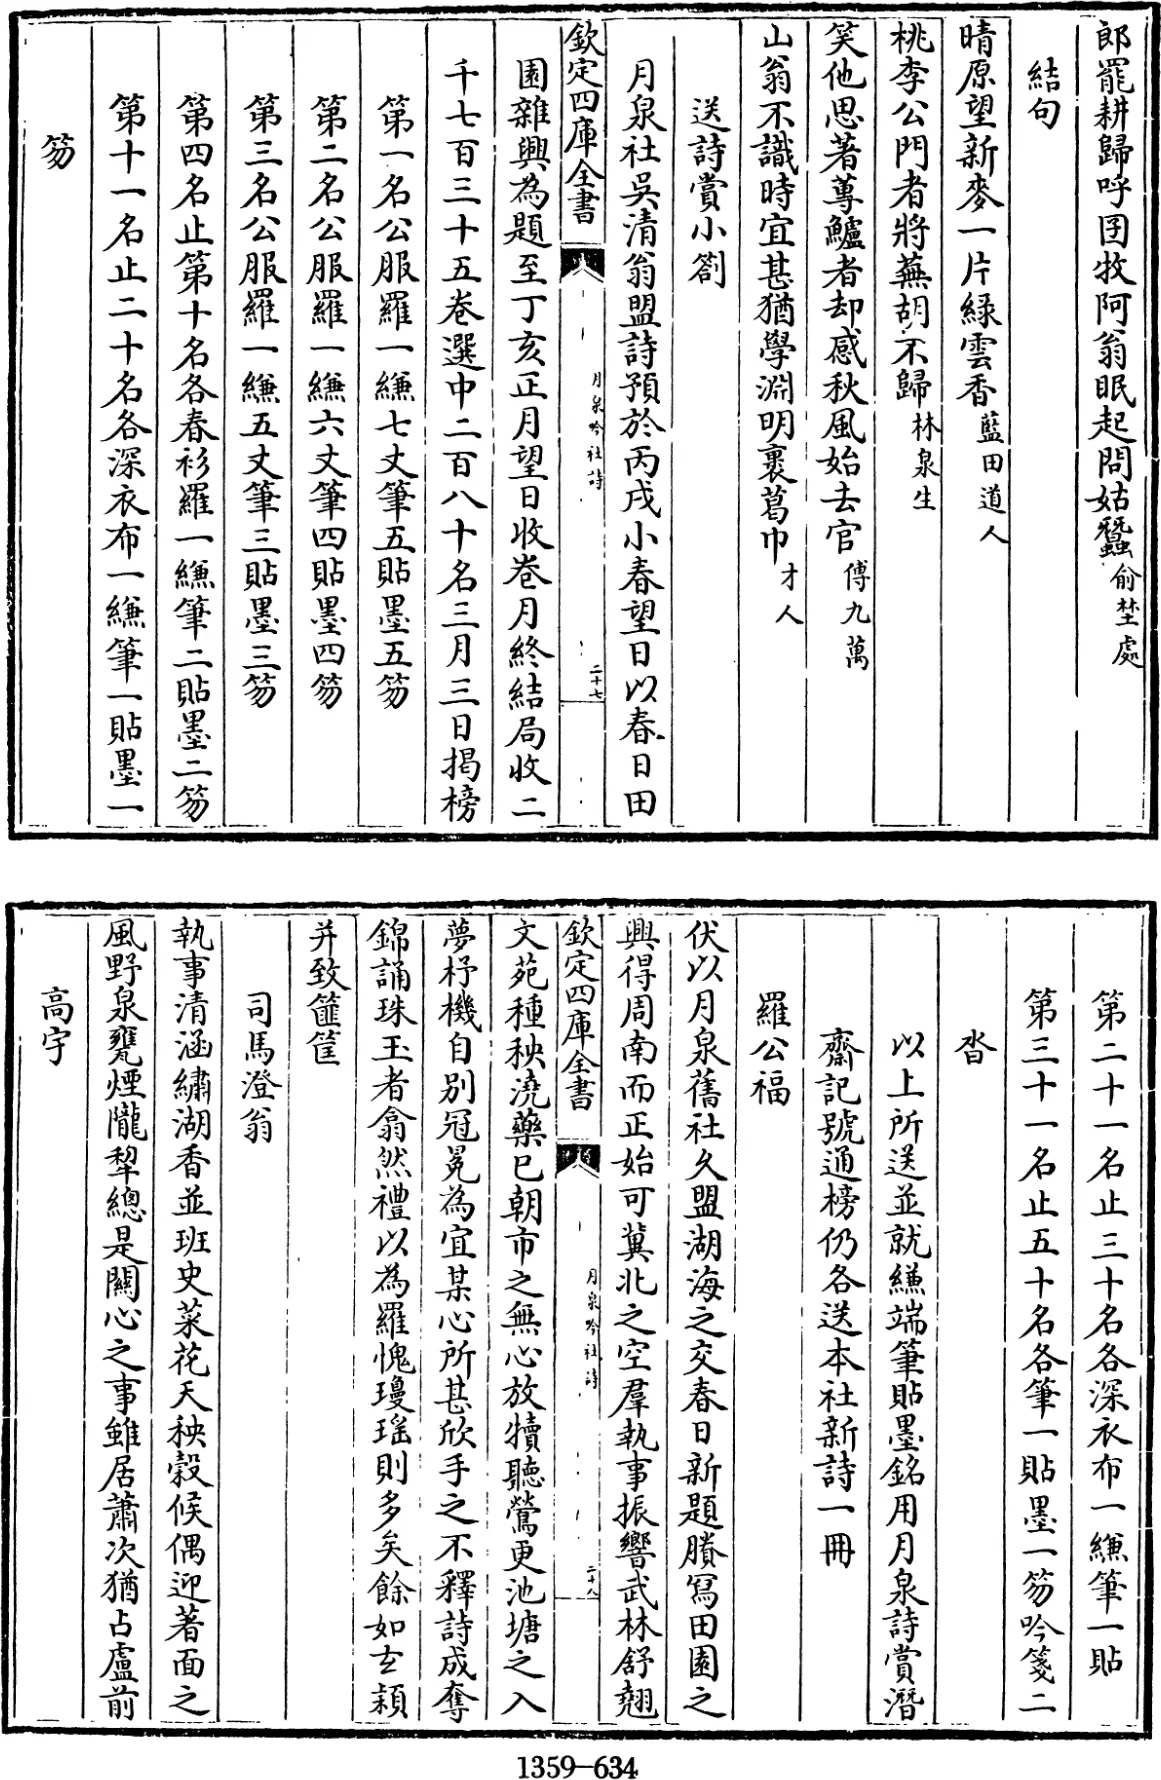 郎罷耕歸呼囝牧阿翁眠起問姑蠶俞埜處
結句
晴原望新麥一片緑雲香藍田道人
桃李公門者將蕪胡不歸林泉生
笑他思著蓴鱸者却感秋風始去官傅九萬
山翁不識時宜甚猶學淵明裹葛巾才人
送詩賞小劄
月泉社吳清翁盟詩預於丙戌小春望日以春日田
欽定四庫全書
月泉吟社詩
二十七
園雜興為題至丁亥正月望日收卷月終結局收二
千七百三十五卷選中二百八十名三月三日揭榜
第一名公服羅一縑七丈筆五貼墨五笏
第二名公服羅一縑六丈筆四貼墨四笏
第三名公服羅一縑五丈筆三貼墨三笏
第四名止第十名各春衫羅一縑筆二貼墨二笏
第十一名止二十名各深衣布一縑筆一貼墨一
笏
第二十一名止三十名各深衣布一縑筆一貼
第三十一名止五十名各筆一貼墨一笏吟箋二
沓
以上所送並就縑端筆貼墨銘用月泉詩賞潛
齋記號通榜仍各送本社新詩一冊
羅公福
伏以月泉舊社久盟湖海之交春日新題賸寫田園之
興得周南而正始可冀北之空羣執事振響武林舒翹
欽定四庫全書
月泉吟社詩
二十八
文苑種秧澆藥已朝市之無心放犢聽鶯更池塘之入
夢杼機自別冠冕為宜某心所甚欣手之不釋詩成奪
錦誦珠玉者翕然禮以為羅愧瓊瑤則多矣餘如玄穎
并致篚筐
司馬澄翁
執事清涵繡湖香並班史菜花天秧穀候偶迎著面之
風野泉甕煙隴犂總是關心之事雖居蕭次猶占盧前
高宇
1359—634